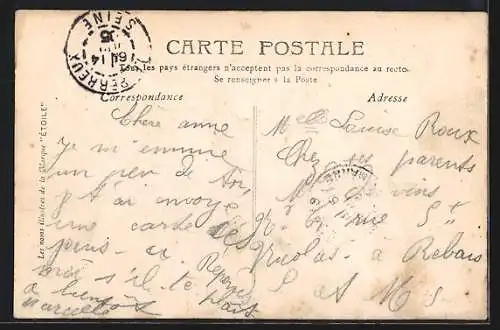 CARTE POSTALE
Tous les pays étrangers n'acceptent pas la correspondance au recto.
Se renseigner à la Poste
Correspondance
Adresse
PERREUX
SEINE
Les nons illustrés de la Marque "ÉTOILE"
Chère anne
je m'ennuie
un peu de toi,
j't'ai envoyé
une carte
Réponds
moi s'il te plait
a bientôt
Marcelle
Melle Louise Roux
Chez ses parents
Md de vins
rue St
Nicolas - à Rebais
S et M